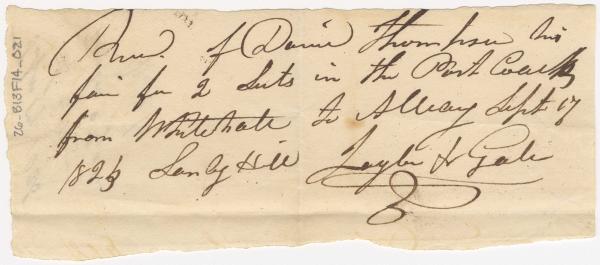 Recd. of Daniel Thompson his
fair for 2 Sets in the Post Coach
from Whitehall to Albany Sept 17
1823 Sandy Hill Taylor & Gale
26-B13F14_021